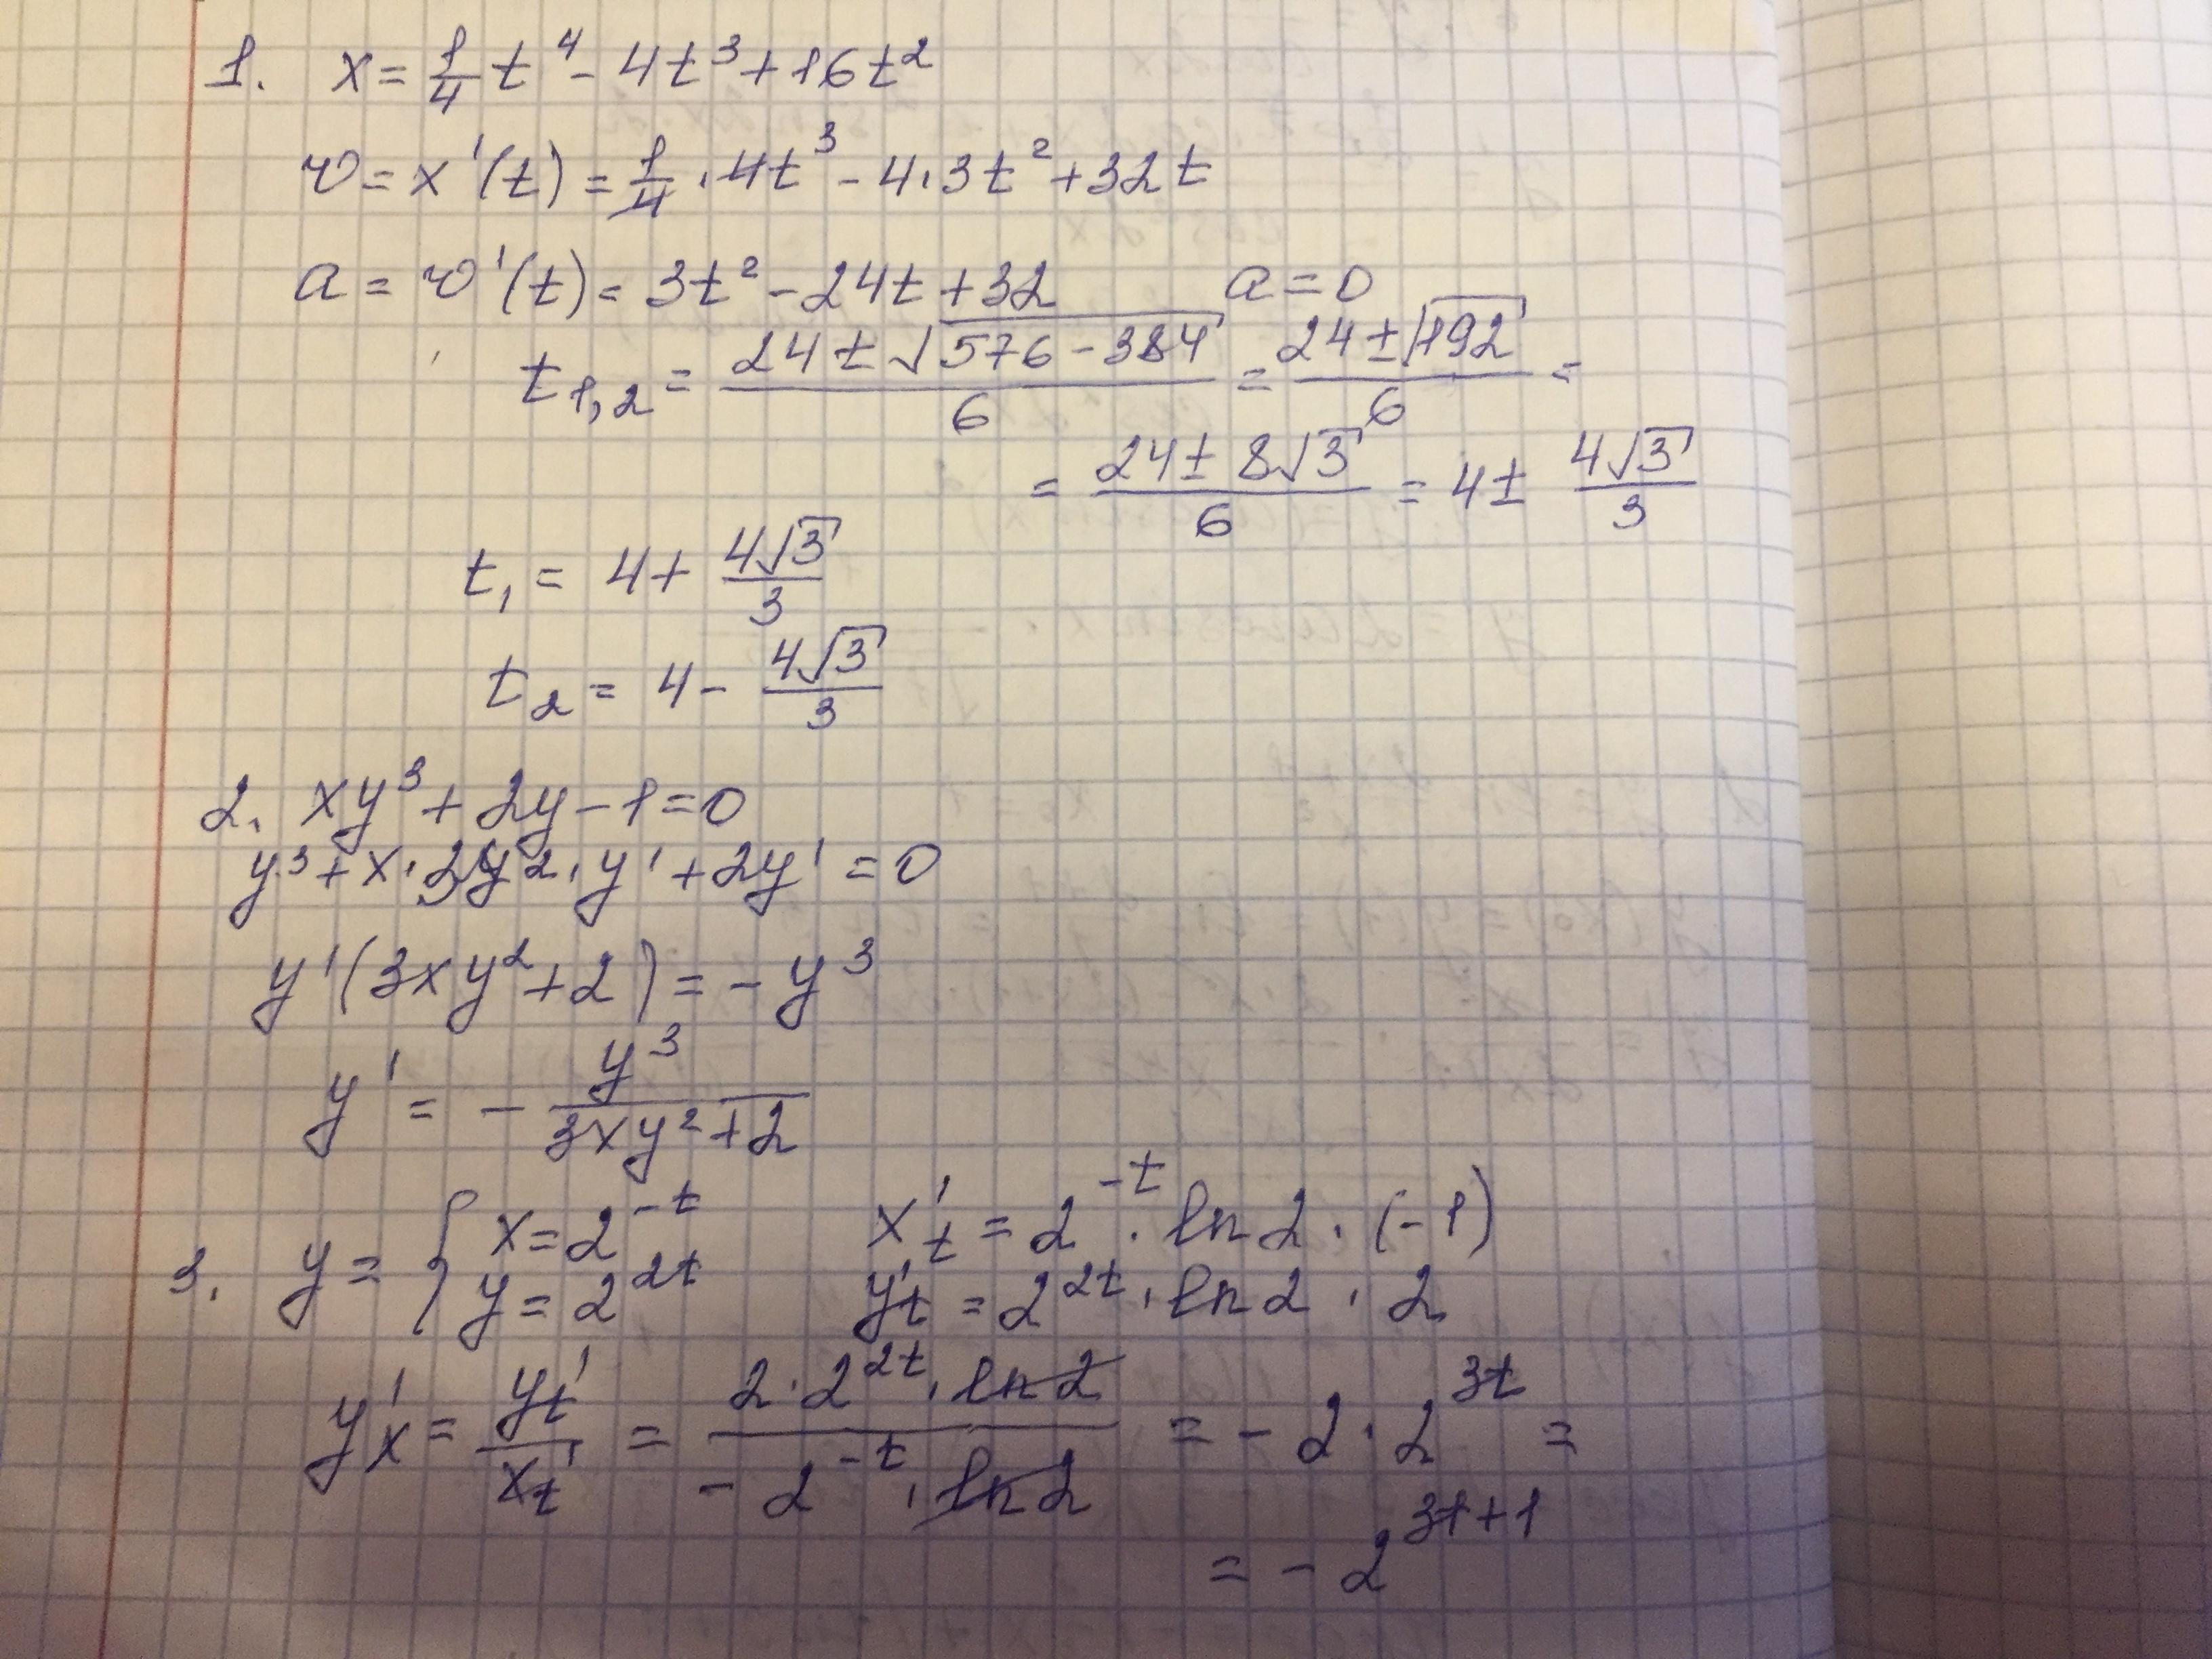 1. x = 1/4 t⁴ - 4t³ + 16t²
v = x'(t) = 1/4 · 4t³ - 4·3t² + 32t
a = v'(t) = 3t² - 24t + 32 a = 0
t₁,₂ = (24 ± √(576 - 384))/6 = (24 ± √192)/6 =
= (24 ± 8√3)/6 = 4 ± 4√3/3
t₁ = 4 + 4√3/3
t₂ = 4 - 4√3/3
2. xy³ + 2y - 1 = 0
y³ + x·3y²·y' + 2y' = 0
y'(3xy² + 2) = -y³
y' = - y³/(3xy² + 2)
3. y = { x = 2^(-t) x't = 2^(-t) · ln2 · (-1)
y = 2^(2t) y't = 2^(2t) · ln2 · 2
y'x = yt'/xt' = (2·2^(2t) · ln2)/(-2^(-t) · ln2) = -2·2^(3t) =
= -2^(3t+1)